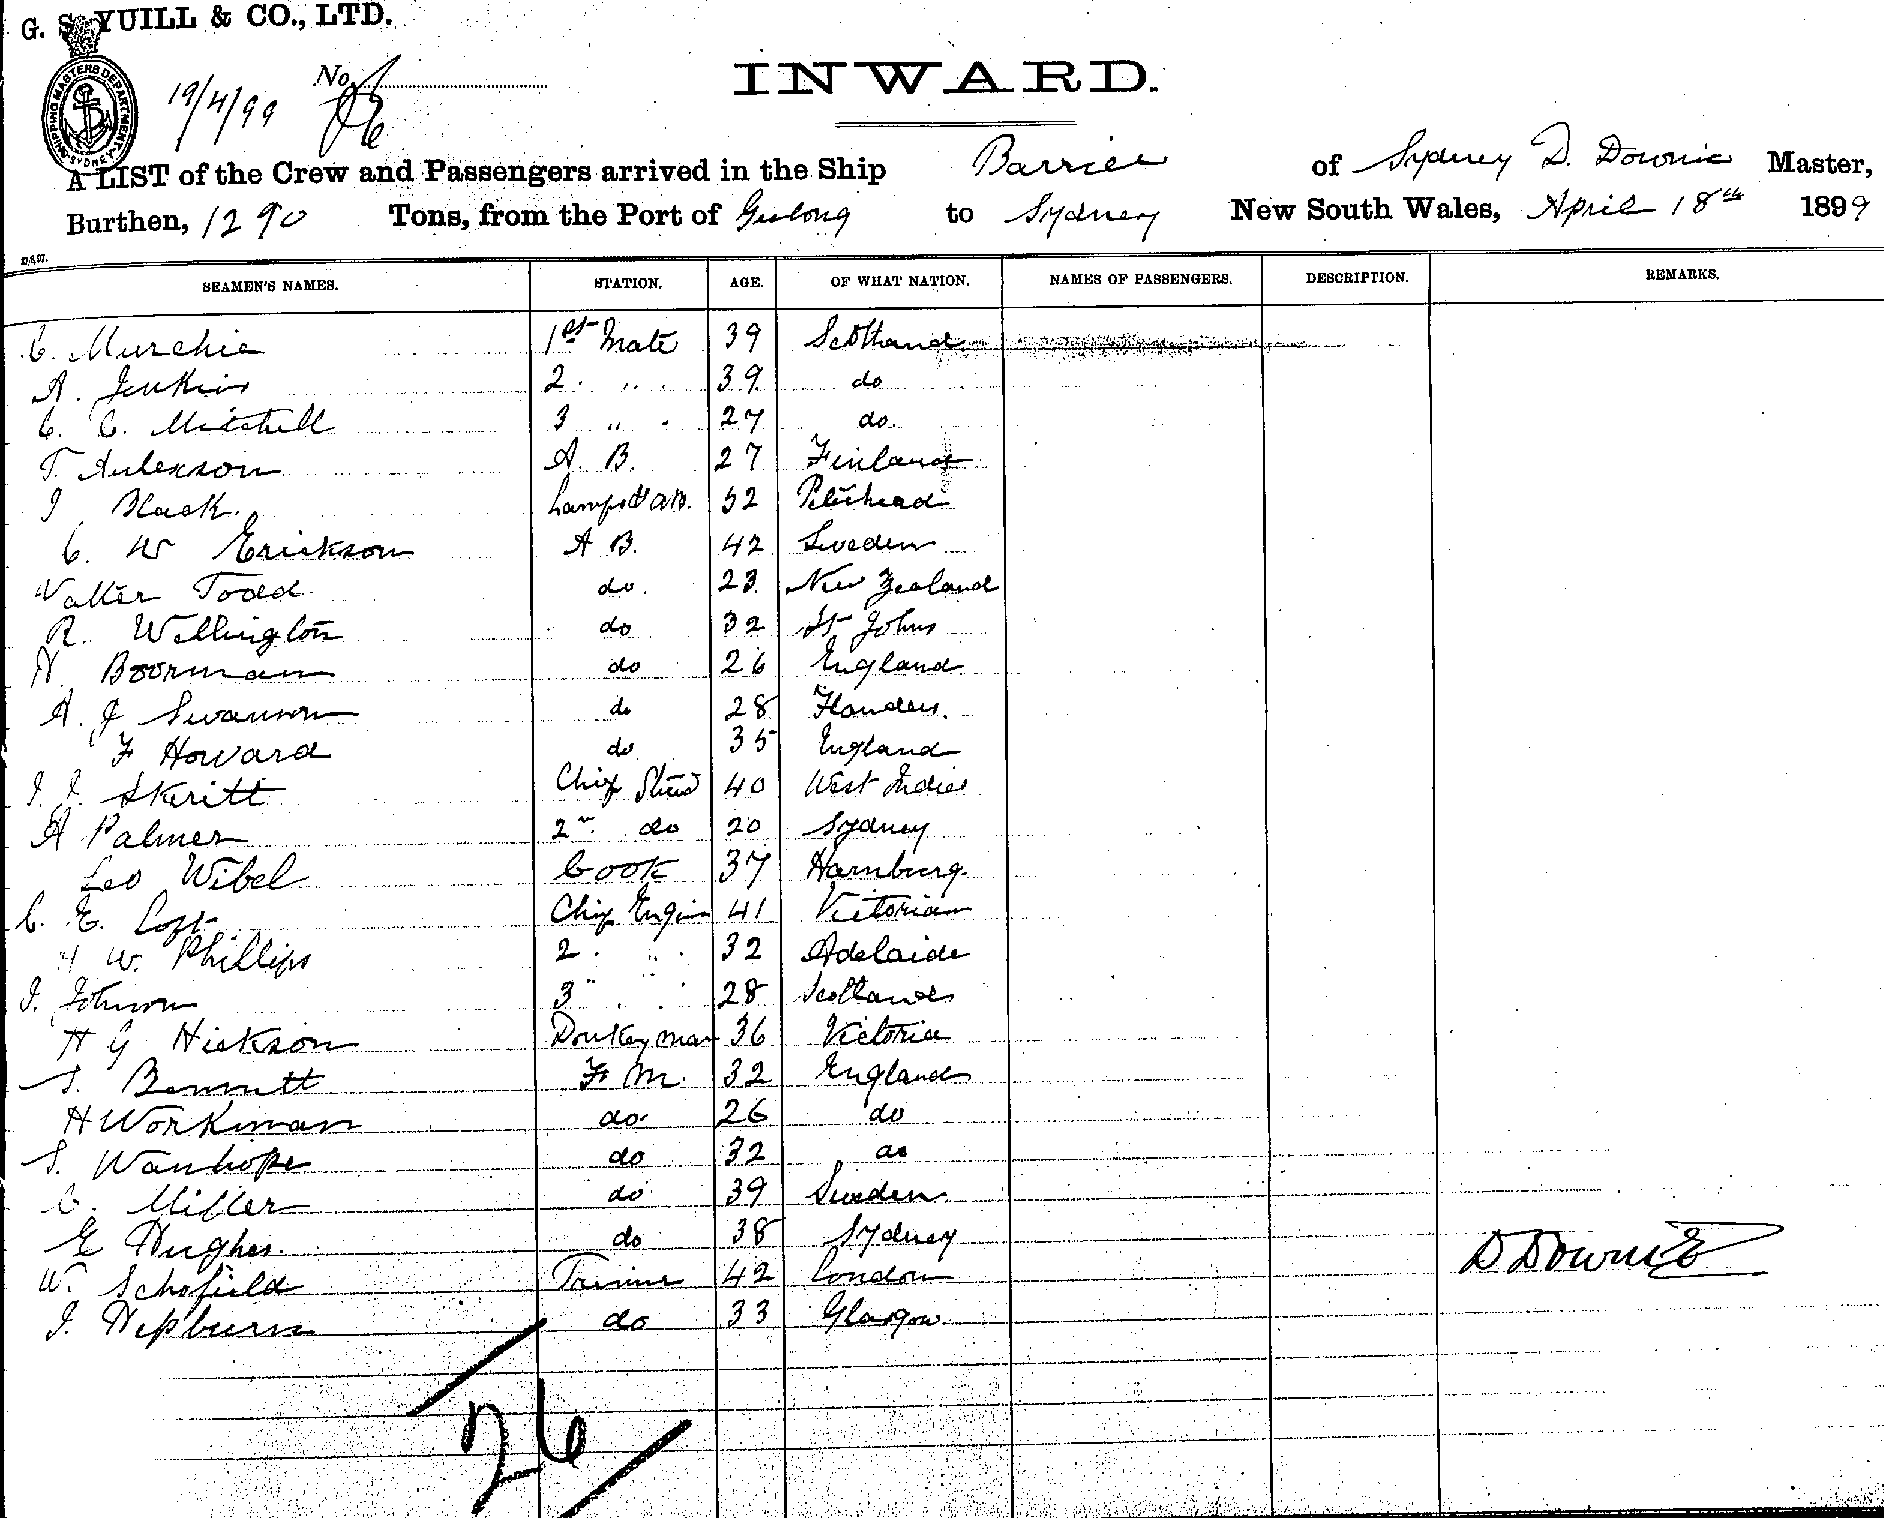 G. S. YUILL & CO., LTD.
SHIPPING MASTERS DEPARTMENT SYDNEY
19/4/99 No.
INWARD.
A LIST of the Crew and Passengers arrived in the Ship Barrier of Sydney D. Downie Master,
Burthen, 1290 Tons, from the Port of Geelong to Sydney New South Wales, April 18th 1899
SEAMEN'S NAMES. STATION. AGE. OF WHAT NATION. NAMES OF PASSENGERS. DESCRIPTION. REMARKS.
C. Murchie 1st Mate 39 Scotland
A. Jenkins 2 " " 39 do
C. C. Mitchell 3 " " 27 do
T. Anderson A B. 27 Finland
J Black Lamps & AB. 52 Peterhead
C. W Erickson A B. 42 Sweden
Walter Todd do 23 New Zealand
R. Wellington do 32 St Johns
H Boorman do 26 England
A. J Swanson do 28 Flanders.
F Howard do 35 England
J. J. Skeritt Chief Stewd 40 West Indies
A Palmer 2nd do 20 Sydney
Leo Wibel Cook 37 Hamburg.
C. E. Loft Chief Engin 41 Victorian
H W. Phillips 2 " " 32 Adelaide
J. Johnson 3 " " 28 Scotland
H G Hickson Donkeyman 36 Victoria
S. Bennett F M. 32 England
H Workman do 26 do
S. Wanhope do 32 do
C. Miller do 39 Sweden
E Hughes. do 38 Sydney
W. Schofield Trimmer 42 London
J. Hepburn do 33 Glasgow
D Downie
26